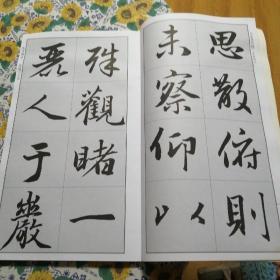 思散俯則
未察仰以
殊觀睹一
麗人于巖